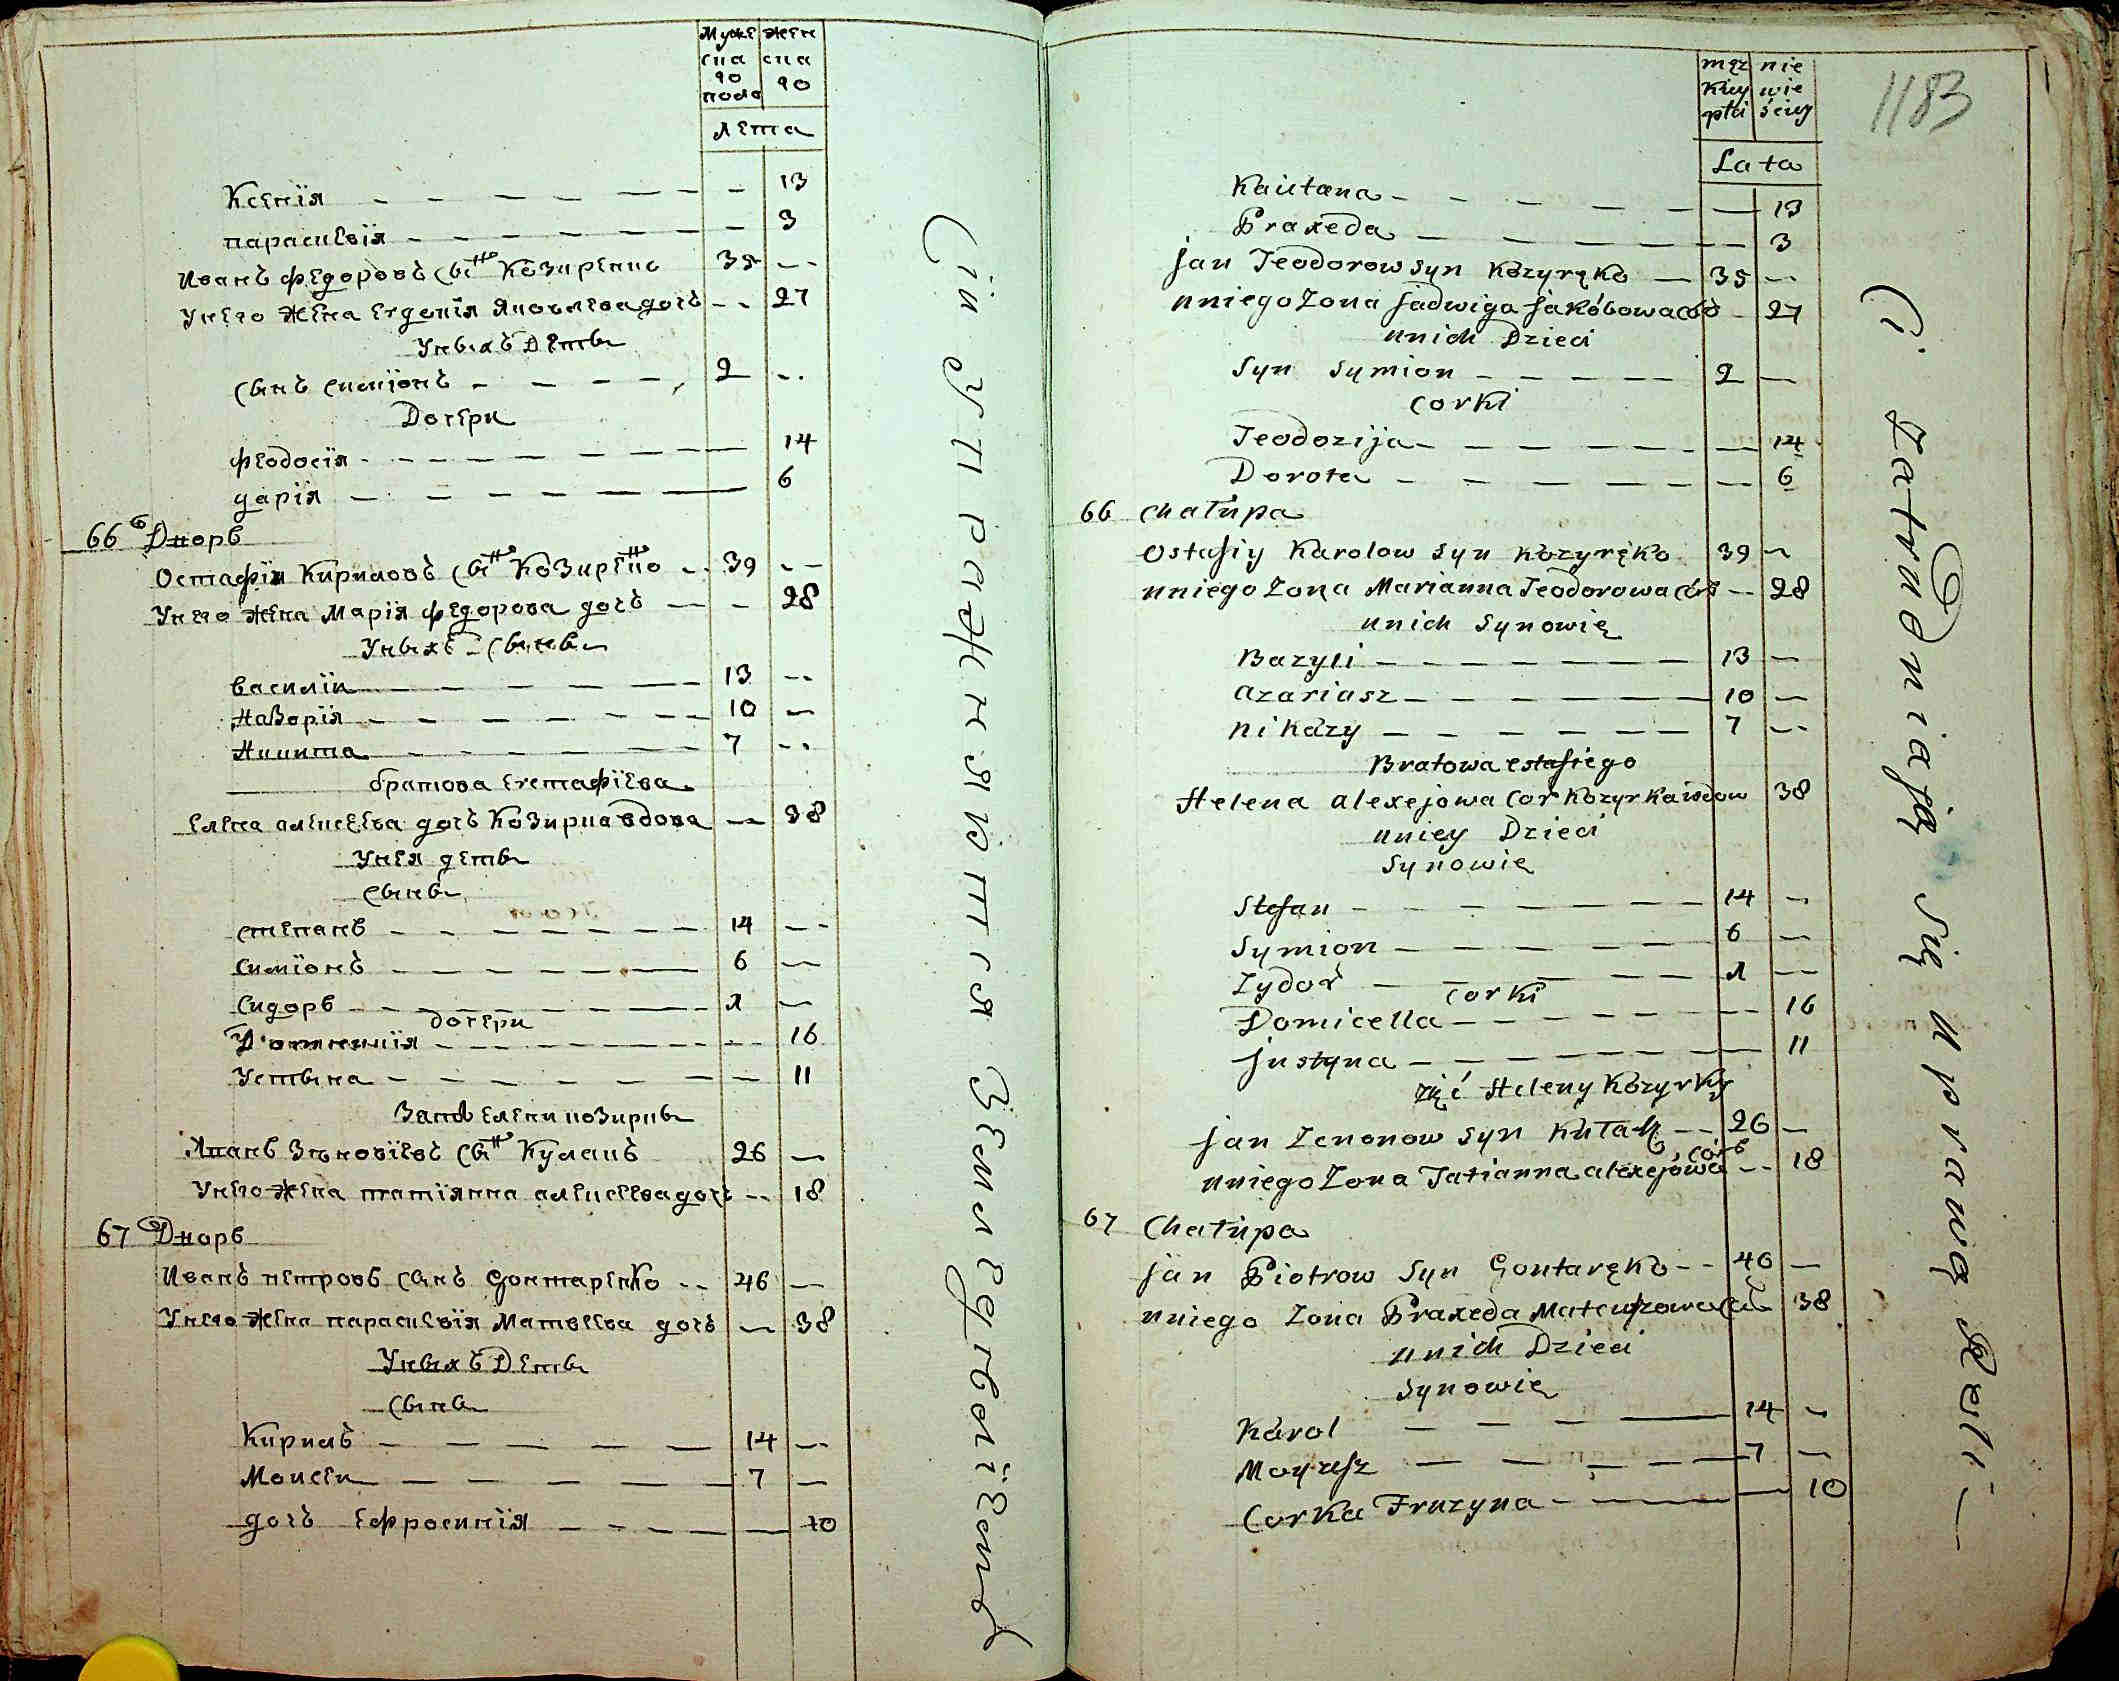 Муже
ска
го
пола
жен
ска
го
лета
Ксенїя 13
параскевїя 3
Иванъ федоровъ снъ Козиренко 35
Унего жена Евдокїя Яковлева дочь 27
Унихъ Дети
сынъ симïонъ 2
Дочери
феодосїя 14
дарїя 6
66 Дворъ
Остафїй Кириловъ снъ Козиренко 39
Унего жена Марїя федорова дочь 28
Унихъ сыны
василїй 13
Назорїй 10
Никита 7
братова Евстафїева
елена алексеева дочь Козирка вдова 38
Унея дети
сыны
степанъ 14
симïонъ 6
сидоръ 1
дочери
16
Устина 11
Зять елени козирки
Яканъ Зѣновїевъ снъ Кулакъ 26
Унего жена татїянна алексеева дочь 18
67 Дворъ
Иванъ петровъ сынъ Гонтаренко 46
Унего жена параскевїя Матвеева дочь 38
Унихъ Дети
сыны
Кирилъ 14
Моисей 7
дочь ефросинїя 10
Сїи упражняютися Земледѣлїемъ
męz
kiey
płci
nie
wie
ściey
1183
Lata
Kaietana 13
Praxeda 3
Jan Teodorow syn Kozyręko 35
uniego Zona Jadwiga Jakóbowa cór 27
unich Dzieci
Syn Symion 2
corki
Teodozija 14
Dorota 6
66 Chałupa
Ostafiy Karolow syn Kozyręko 39
uniego Zona Marianna Teodorowa cór 28
unich Synowię
Bazyli 13
azariasz 10
nikazy 7
Bratowa estafiego
Helena alexejowa Cor Kozyrka wdow 38
uniey Dzieci
Synowie
Stefan 14
Symion 6
Zydor 1
corki
Domicella 16
Justyna 11
zięć Heleny Kozyrky
Jan Zenonow syn Kułak 26
uniego Zona Tatianna alexejowa córk 18
67 Chałupa
Jan Piotrow Syn Gontaręko 46
uniego Zona Praxeda Mateuszowa cór 38
unich Dzieci
Synowię
Karol 14
Moyżesz 7
Corka Fruzyna 10
Ci Zatrudniają się uprawą Roli